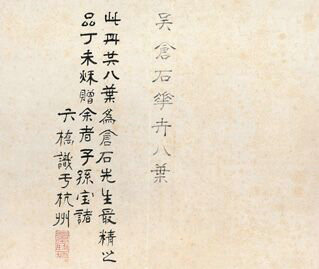 吳倉石華卉八葉
此冊共八葉為倉石先生最精之
品丁未秋贈余者子孫宝諸
六橋識于杭州